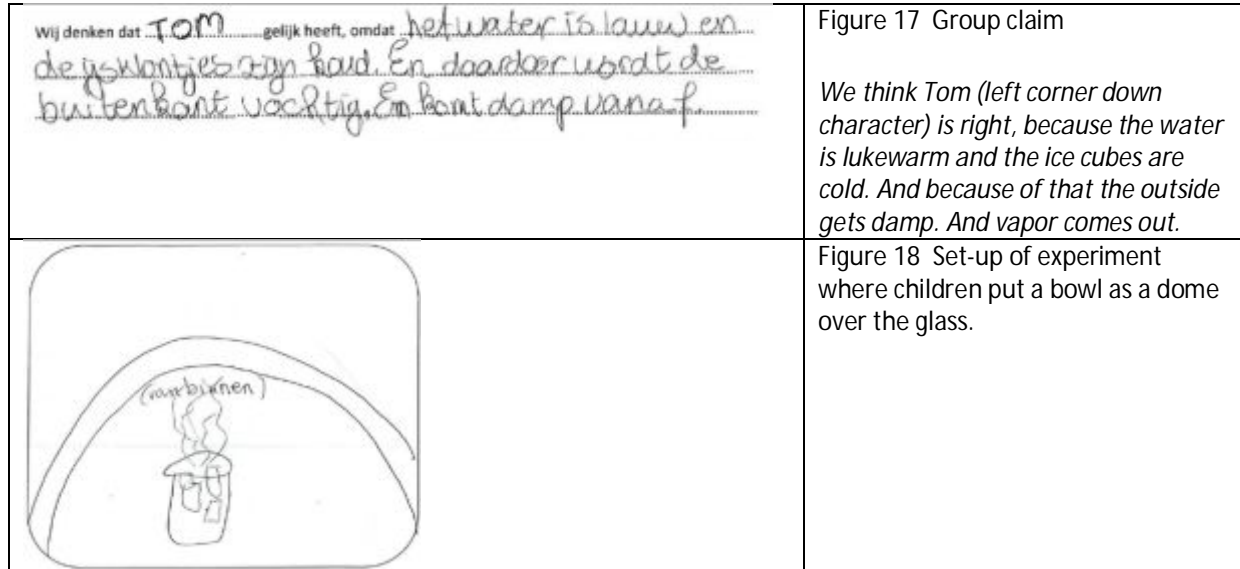 Wij denken dat TOM gelijk heeft, omdat het water is lauw en
de ijsklontjes zijn koud. En daardoor wordt de
buitenkant vochtig. En komt damp vanaf.
Figure 17 Group claim
We think Tom (left corner down
character) is right, because the water
is lukewarm and the ice cubes are
cold. And because of that the outside
gets damp. And vapor comes out.
(van binnen)
Figure 18 Set-up of experiment
where children put a bowl as a dome
over the glass.